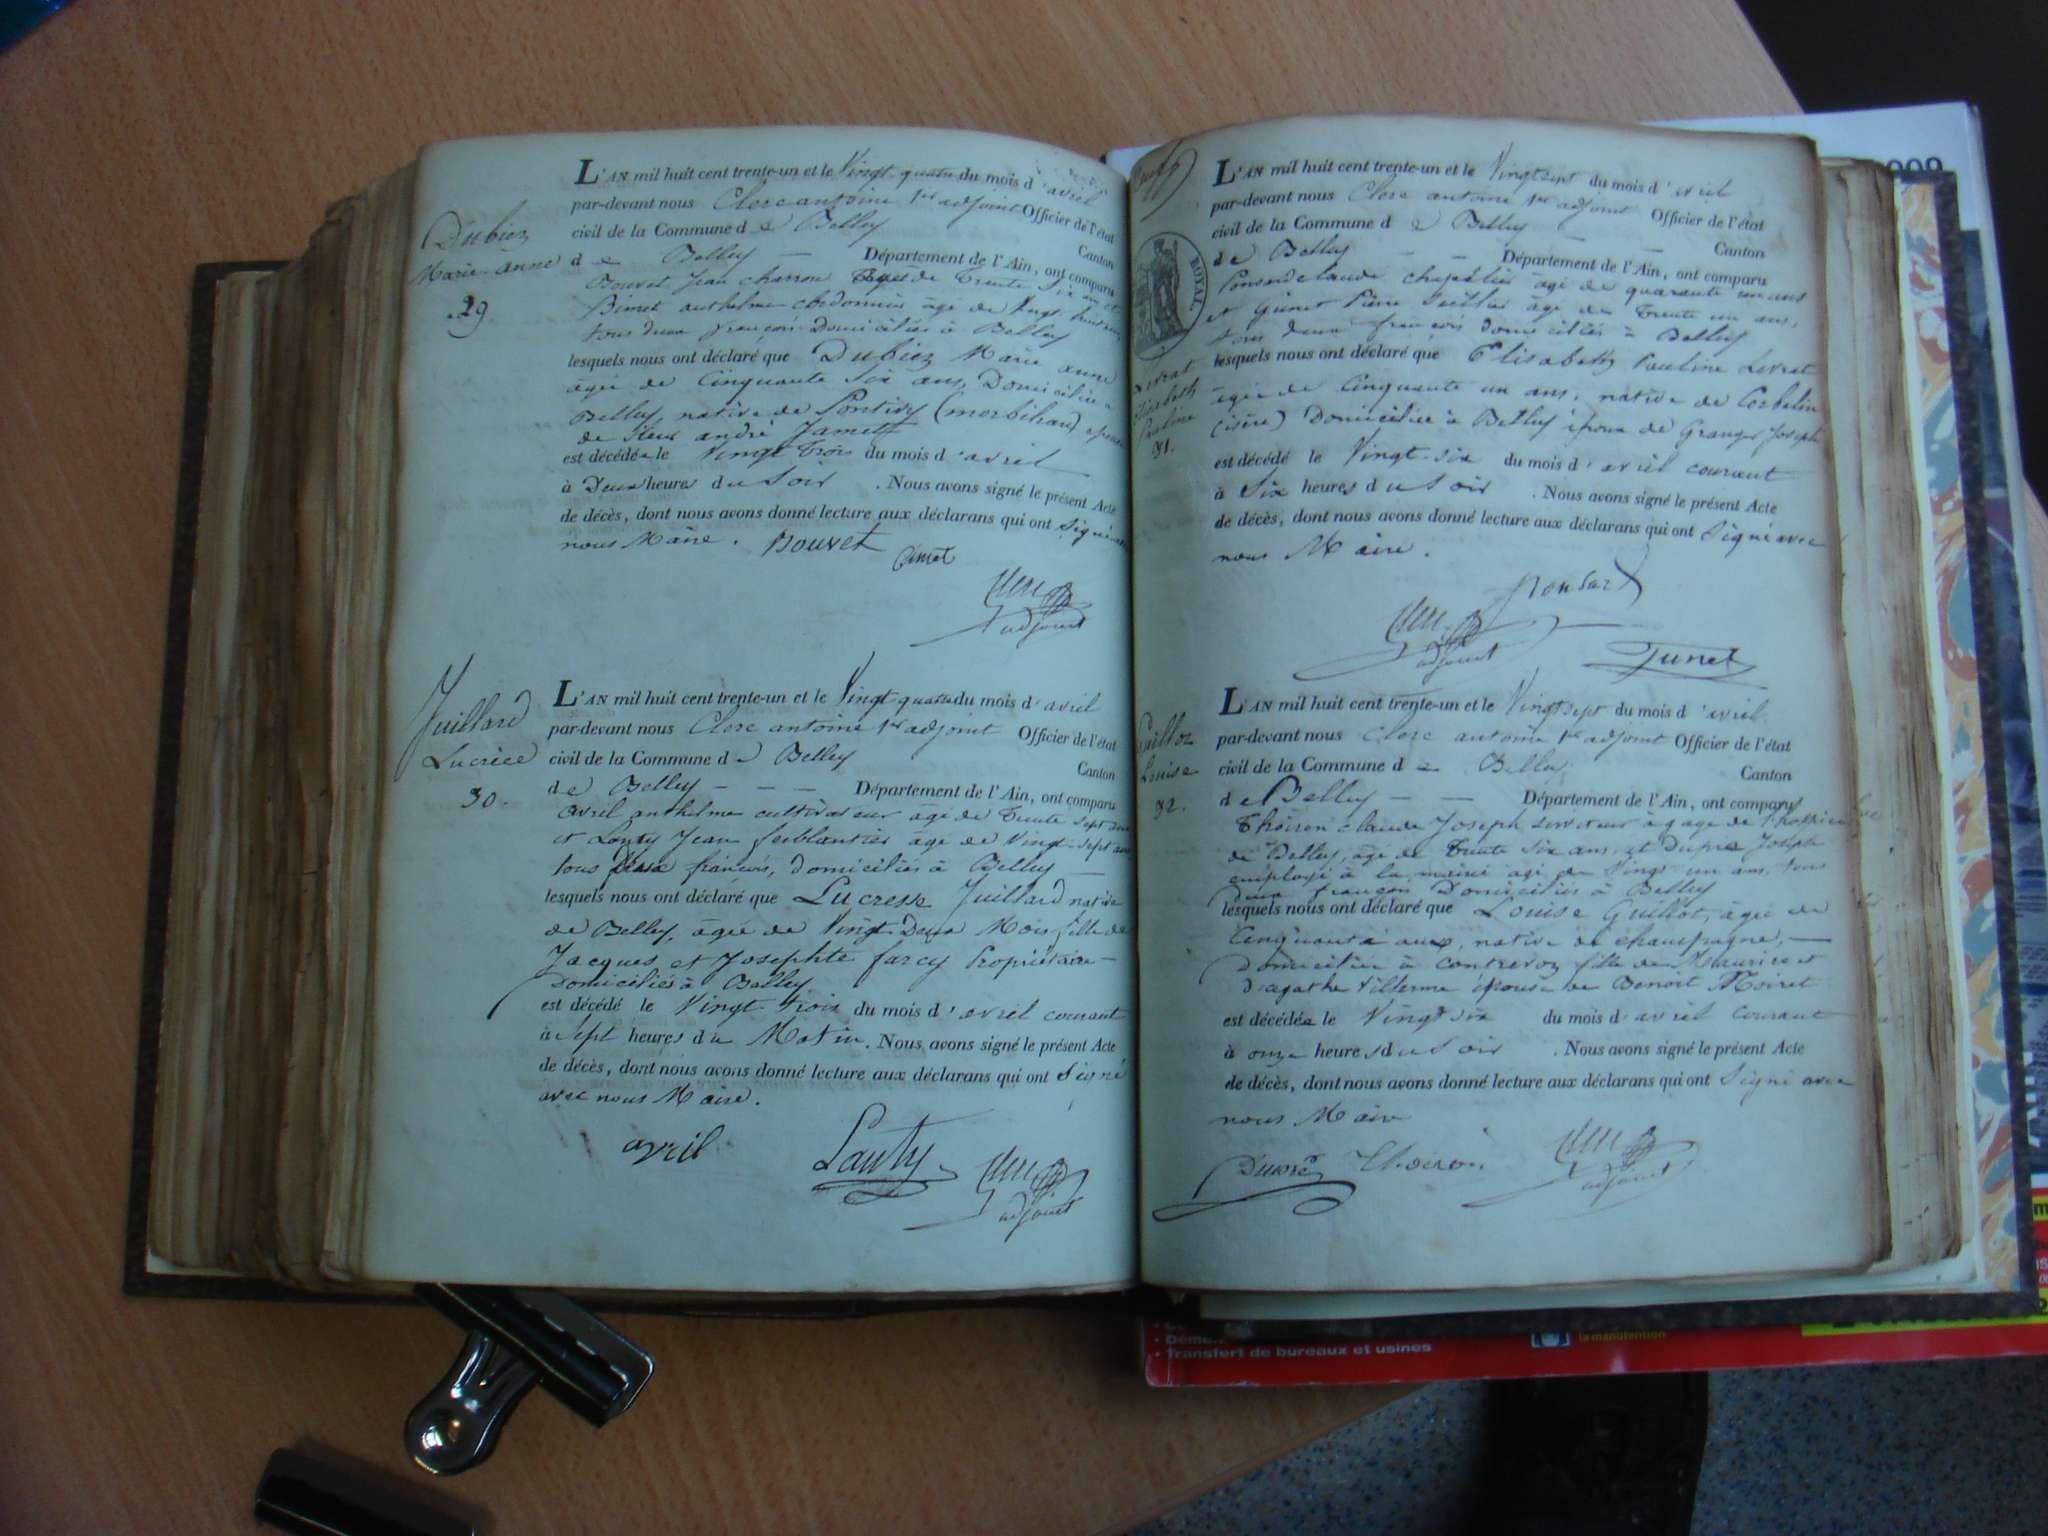 Dubiez
Marie-anne
29
L'AN mil huit cent trente-un et le Vingt-quatre du mois d'avril
par-devant nous Clerc antoine 1er adjoint Officier de l'état
civil de la Commune de Belley Canton
de Belley Département de l'Ain, ont comparu
Bouvet Jean charron âgé de Trente Six ans et
Bimet anthelme cordonnier âgé de Vingt huit ans
tous deux françois Domiciliés à Belley
lesquels nous ont déclaré que Dubiez Marie anne
âgée de Cinquante Six ans, Domiciliée à
Belley, native de Pontivy (morbihan) épouse
de Sieur andré Jamet
est décédée le Vingt Trois du mois d'avril
à Deux heures du Soir. Nous avons signé le présent Acte
de décès, dont nous avons donné lecture aux déclarans qui ont Signé avec
nous Maire. Bouvet
Bimet
adjoint
Juillard
Lucrèce
30.
L'AN mil huit cent trente-un et le Vingt quatre du mois d'avril
par-devant nous Clerc antoine 1er adjoint Officier de l'état
civil de la Commune de Belley Canton
de Belley Département de l'Ain, ont comparu
avril anthelme cultivateur âgé de Trente Sept ans
et Lauty Jean ferblantier âgé de Vingt-Sept ans
tous deux françois, domiciliés à Belley
lesquels nous ont déclaré que Lucresse Juillard native
de Belley, âgée de Vingt-Deux Mois fille de
Jacques et Josephte farcy Propriétaire
Domiciliés à Belley
est décédé le Vingt trois du mois d'avril courant
à Sept heures du Matin. Nous avons signé le présent Acte
de décès, dont nous avons donné lecture aux déclarans qui ont Signé
avec nous Maire.
avril Lauty
adjoint
ROYAL
Levrat
Elisabeth
Pauline
31.
L'AN mil huit cent trente-un et le Vingt sept du mois d'avril
par-devant nous Clerc antoine 1er adjoint Officier de l'état
civil de la Commune de Belley Canton
de Belley Département de l'Ain, ont comparu
claude chapelier âgé de quarante un ans
et Pierre âgé de Trente un ans,
tous deux françois domiciliés à Belley
lesquels nous ont déclaré que Elisabeth Pauline Levrat
âgée de Cinquante un ans, native de Corbelin
(isère) Domiciliée à Belley épouse de Granger Joseph
est décédé le Vingt-six du mois d'avril courant
à Six heures du Soir. Nous avons signé le présent Acte
de décès, dont nous avons donné lecture aux déclarans qui ont Signé avec
nous Maire.
adjoint
Guilloz
Louise
32.
L'AN mil huit cent trente-un et le Vingt sept du mois d'avril
par-devant nous Clerc antoine 1er adjoint Officier de l'état
civil de la Commune de Belley Canton
de Belley Département de l'Ain, ont comparu
Thoiron claude Joseph serviteur à gage de l'hospice
de Belley, âgé de Trente Six ans et Dupré Joseph
employé à la mairie âgé de Vingt-un ans, tous
deux françois Domiciliés à Belley
lesquels nous ont déclaré que Louise Guillot, âgée de
Cinquante ans, native de champagne,
Domiciliée à Contrevoz fille de Maurice et
d'agathe Villerme épouse de Benoit Moiret
est décédée le Vingt six du mois d'avril courant
à onze heures du Soir. Nous avons signé le présent Acte
de décès, dont nous avons donné lecture aux déclarans qui ont Signé avec
nous Maire
Dupré Thoiron
adjoint
la manutention
• Transfert de bureaux et usines